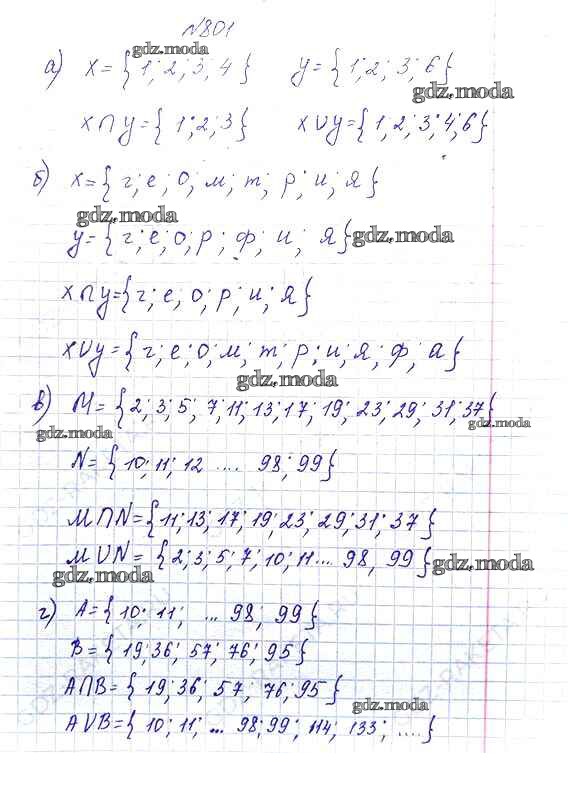 №801
gdz.moda
а) X={1; 2; 3; 4}   y={1; 2; 3; 6}
gdz.moda
X∩y={1; 2; 3}   X∪y={1, 2; 3; 4; 6}
б) X={г; е; о; м; т; р; и; я}
gdz.moda
y={г; е; о; р; ф; и; я} gdz.moda
X∩y={г; е, о; р; и; я}
X∪y={г; е; о; м; т; р; и; я; ф; а}
gdz.moda
в) M={2; 3; 5; 7; 11; 13; 17; 19; 23; 29; 31; 37}
gdz.moda
gdz.moda
N={10; 11; 12 .... 98; 99}
M∩N={11; 13; 17; 19; 23; 29; 31; 37}
M∪N={2; 3; 5; 7; 10; 11... 98, 99} gdz.moda
gdz.moda
г) A={10; 11; ... 98; 99}
B={19; 36; 57; 76; 95}
A∩B={19; 36; 57, 76; 95}
gdz.moda
A∪B={10; 11; ... 98; 99; 114; 133; ....}